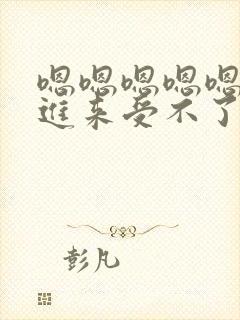 嗯嗯嗯嗯嗯
进来受不了
彭凡